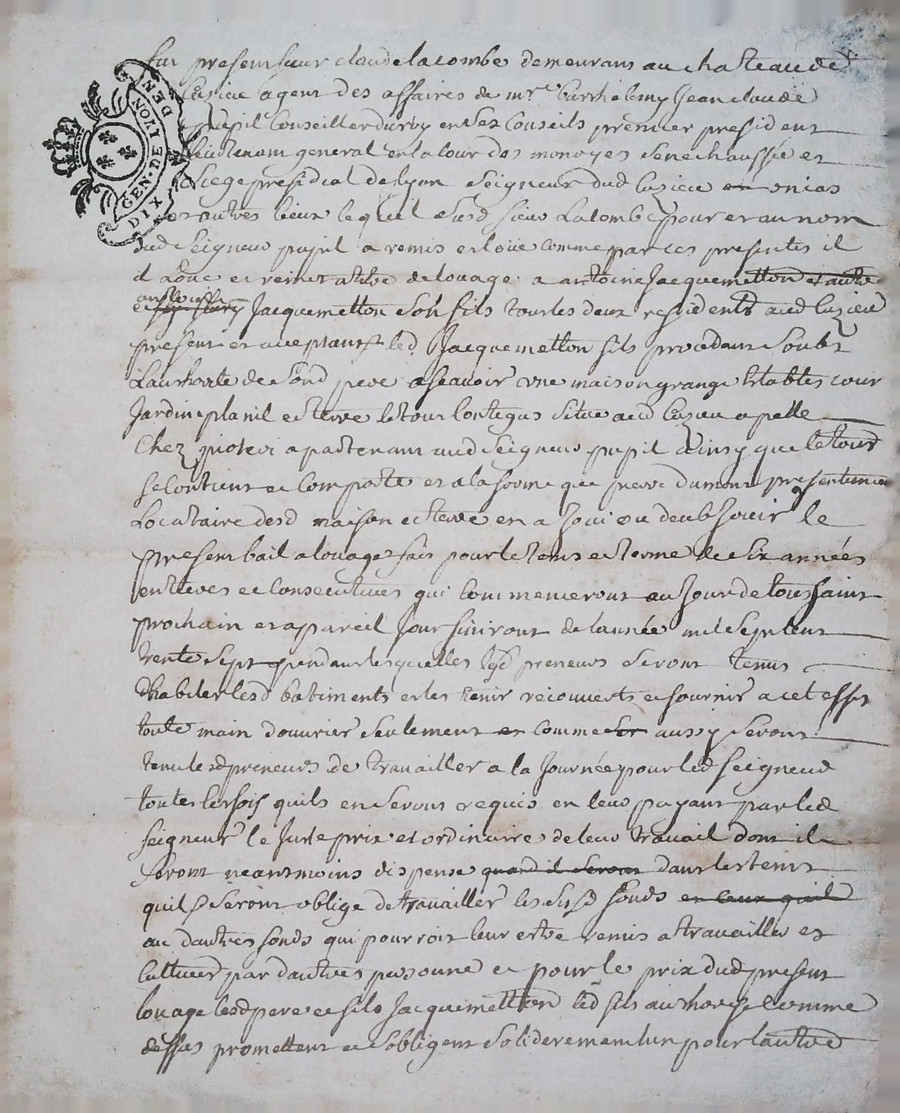 GEN · DE LYON
DIX DEN
fut present sieur claude lacombe demeurans au chateau de
Luzieu agent des affaires de mr. Barthelemy Jean claude
pupil Conseiller du roy en ses Conseils premier president
lieutenant general en la cour des monoyes senechaussée et
siege presidial de lyon seigneur dud Luzieu
et autres lieux lequel susd sieur Lacombe pour et au nom
dud seigneur pupil a remis et loüe comme par ces presentes il
il Loüe et remet a titre de louage a antoine Jacquemetton et autre
et Jacquemetton son fils tous les deux residents aud Luzieu
present et acceptant led. Jacquemetton fils procedant soubz
Lauthorite de sond pere ascavoir une maison grange Estables cour
Jardin planil et terre le tout contigus situé aud Luzieu apellé
Chez apartenant aud seigneur pupil ainsy que le tout
se Contient et Comporte et a la forme que
Locataire desd maison et terre en a Joui ou deub Jouir le
present bail a louage fait pour le tems et terme de six années
entieres et consecutives qui commenceront au Jour de tous saint
prochain et a pareil Jour finiront de lannée mil sept cent
trente sept pendant lesquelles lesd preneurs seront tenus
dhabiter lesd batiments et les tenir recouverts et fournir a cet effet
toute main douvrier seulement et comme aussy seront
tenu lesd preneurs de travailler a la Journée pour led seigneur
toutes les fois quils en seront requis en leur payant par led
seigneur le Juste prix et ordinaire de leur travail dont il
seront neantmoins dispensé quand il seront dans les tems
quil seront obligé de travailler les susd fonds en ceux quil
au dautres fonds qui pourroit leur estre remis a travailler et
cultiver par dautres personne et pour le prix dud present
louage lesd pere et fils Jacquemetton led fils authorisé Comme
dessus promettent et sobligent soliderement lun pour lautre